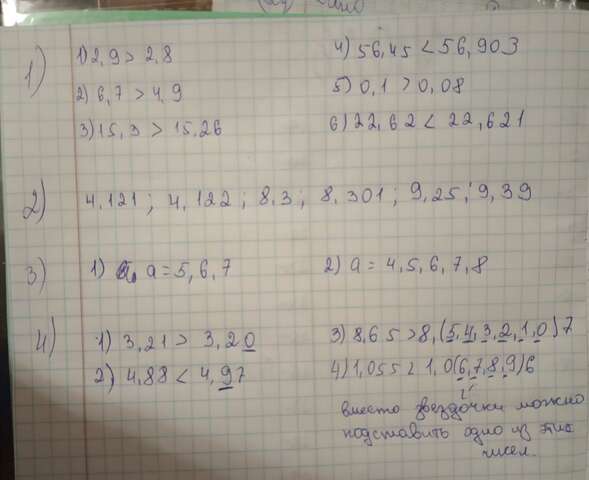 1)
1) 2,9 > 2,8
4) 56,45 < 56,903
2) 6,7 > 4,9
5) 0,1 > 0,08
3) 15,3 > 15,26
6) 22,62 < 22,621
2)
4,121; 4,122; 8,3; 8,301; 9,25; 9,39
3)
1) a = 5,6,7
2) a = 4,5,6,7,8
4)
1) 3,21 > 3,20
3) 8,65 > 8,(5,4,3,2,1,0)7
2) 4,88 < 4,97
4) 1,055 < 1,0(6,7,8,9)6
вместо звездочки можно
подставить одно из этих
чисел.